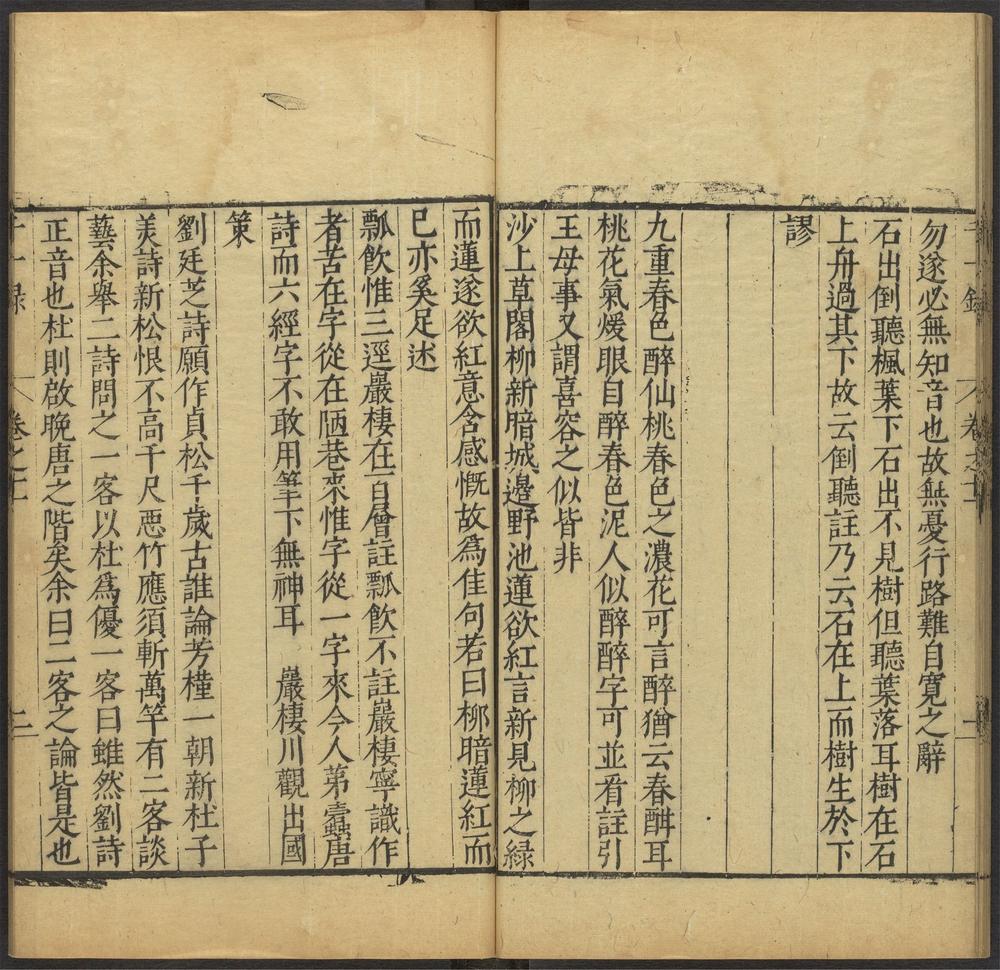 勿遂必無知音也故無憂行路難自寛之辭
石出倒聽楓葉下石出不見樹但聽葉落耳樹在石
上舟過其下故云倒聽註乃云石在上而樹生於下
謬
九重春色醉仙桃春色之濃花可言醉猶云春酣耳
桃花氣煖眼自醉春色泥人似醉醉字可並看註引
王母事又謂喜容之似皆非
沙上草閣柳新暗城邊野池蓮欲紅言新見柳之緑
而蓮遂欲紅意含感慨故爲佳句若曰柳暗蓮紅而
已亦奚足述
瓢飲惟三逕巖棲在百層註瓢飲不註巖棲寧識作
者苦在字從在陋巷來惟字從一字來今人第蠹唐
詩而六經字不敢用筆下無神耳　巖棲川觀出國
策
劉廷芝詩願作貞松千歲古誰論芳槿一朝新杜子
美詩新松恨不高千尺惡竹應須斬萬竿有二客談
藝余舉二詩問之一客以杜爲優一客曰雖然劉詩
正音也杜則啟晚唐之階矣余曰二客之論皆是也
卷之十
二